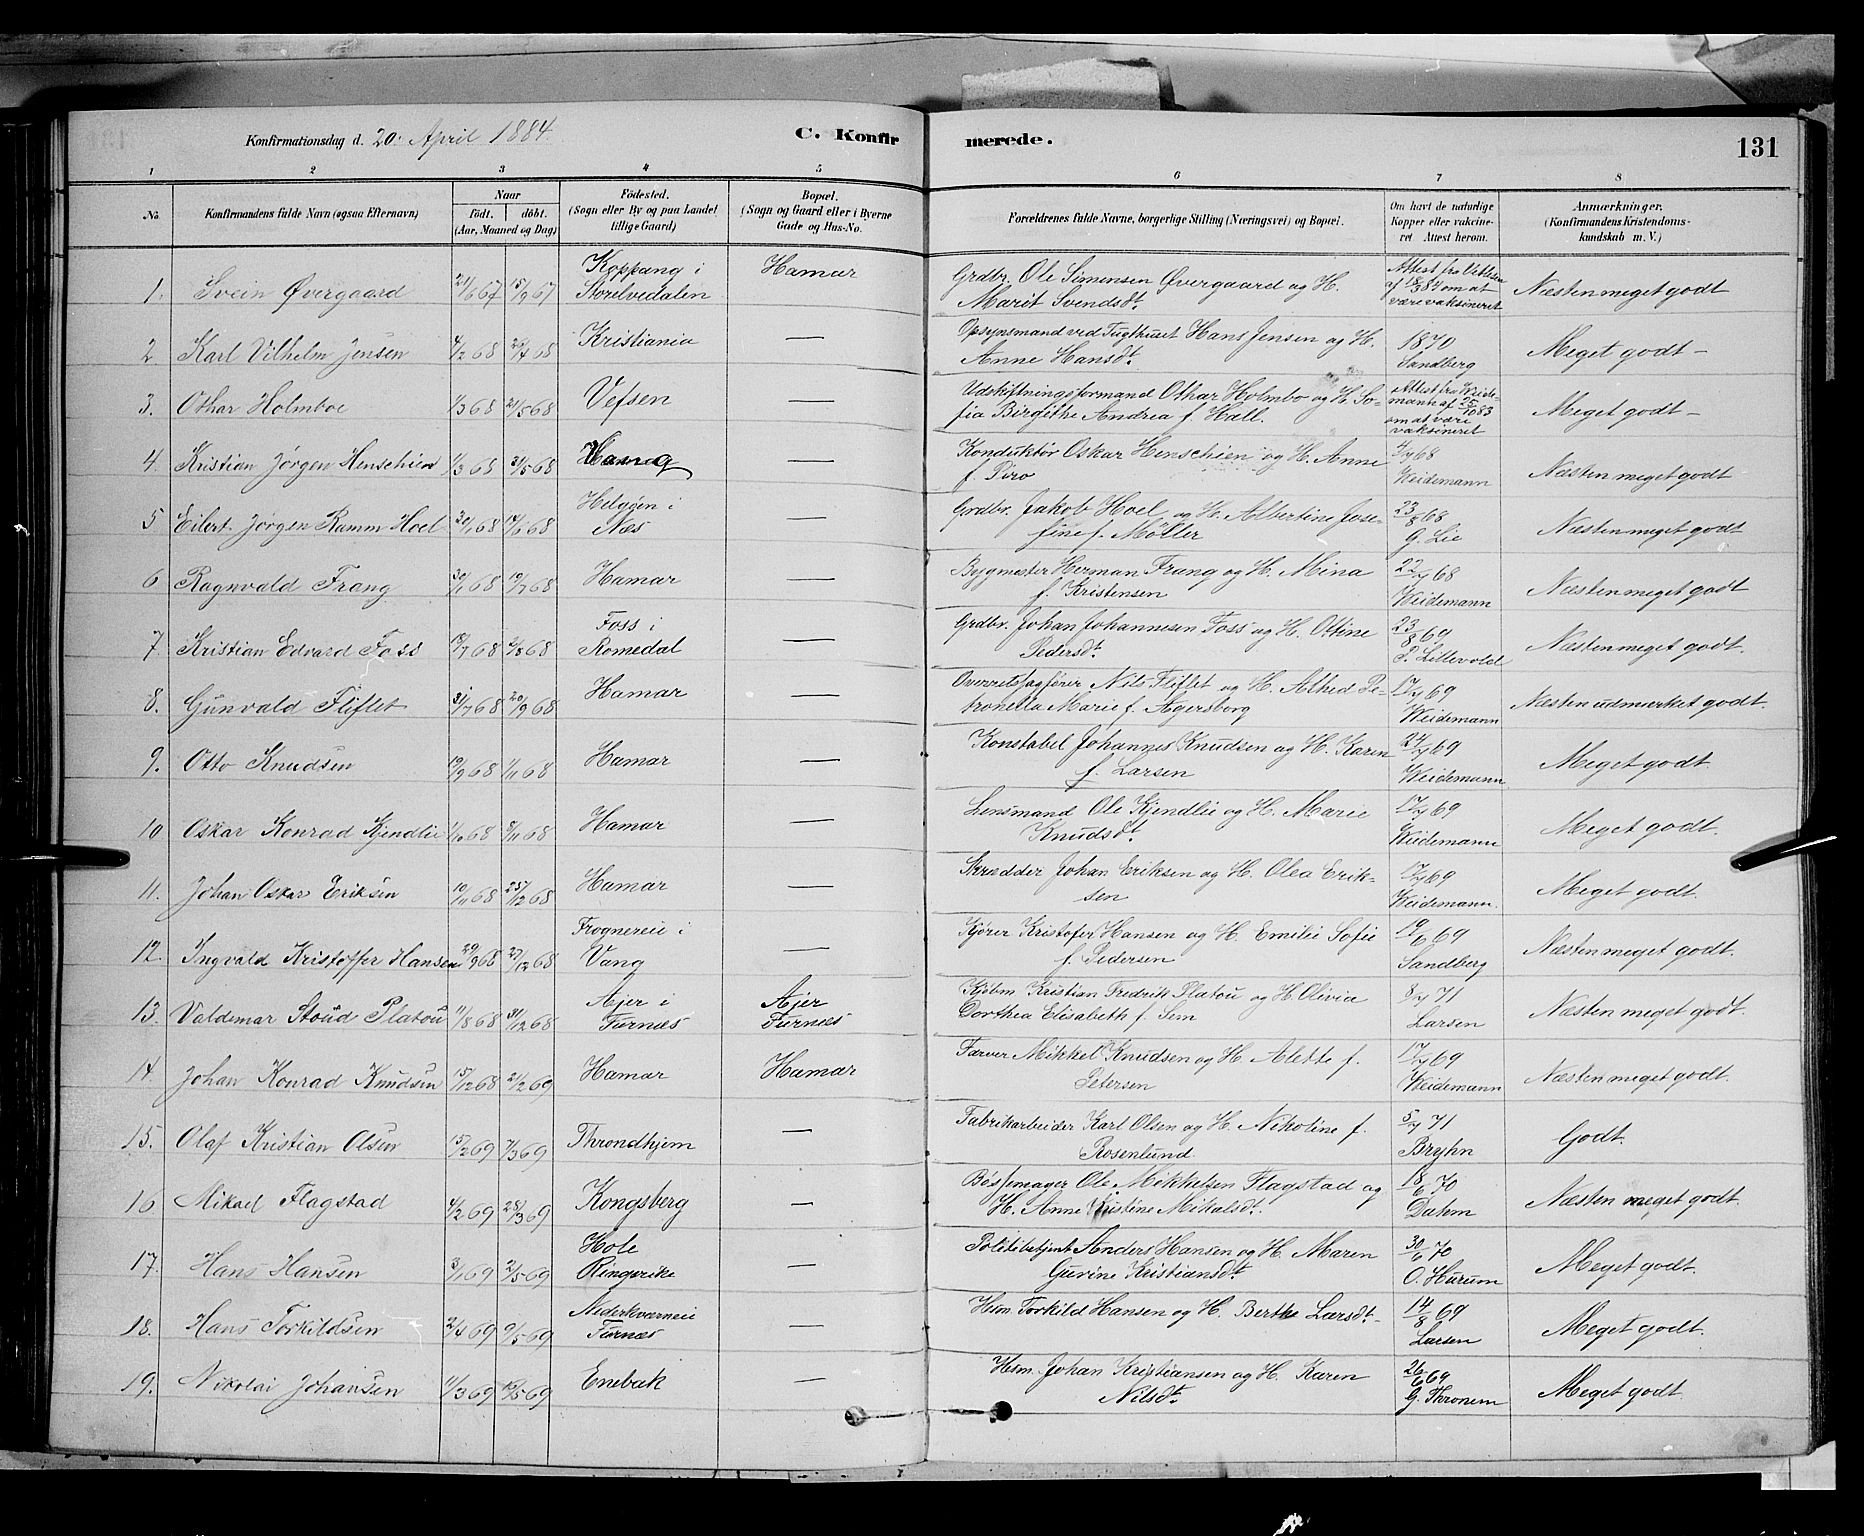 Konfirmationsdag d. 20. April 1884. C. Konfirmerede. 131
1 2 3 4 5 6 7 8
No. Konfirmandens fulde Navn (ogsaa Efternavn) Naar födt. döbt. (Aar, Maaned og Dag) Födested. (Sogn eller By og paa Landet tillige Gaard) Bopæl. (Sogn og Gaard eller i Byerne Gade og Hus-No. Forældrenes fulde Navne, borgerlige Stilling (Næringsvei) og Bopæl. Om havt de naturlige Kopper eller vakcineret Attest herom. Anmærkninger. (Konfirmandens Kristendomskundskab m. V.)
1. Svein Øvergaard 21/6 67 15/9 67 Koppang i Storelvedalen Hamar Grdbr. Ole Simensen Øvergaard og H. Marit Svendsdt. Attest fra Vetlesen af 18/3 84 om at være vaksineret Næsten meget godt
2. Karl Vilhelm Jensen 4/2 68 26/4 68 Kristiania — Opsynsmand ved Tugthuset Hans Jensen og H. Anne Hansdt. 1870 Sandberg Meget godt –
3. Othar Holmboe 1/3 68 21/5 68 Vefsen — Udskiftningsformand Othar Holmbo og H. Sofia Birgithe Andrea f. Hall. Attest fra Weidemann af 25/10 83 om at være vaksineret Meget godt –
4. Kristian Jørgen Henschien 1/3 68 31/5 68 — Konduktør Oskar Henschien og H. Anne f. Piro 4/7 68 Weidemann Næsten meget godt
5 Eilert Jørgen Ramm Hoel 30/1 68 14/6 68 Helgøen i Næs — Grdbr. Jakob Hoel og H. Albertine Josefine f. Möller 23/8 68 G. Lie Næsten meget godt
6 Ragnvald Frang 30/1 68 19/7 68 Hamar — Bygmester Herman Frang og H. Mina f. Kristensen 22/7 68 Weidemann Næsten meget godt
7. Kristian Edvard Foss 12/7 68 2/8 68 Foss i Romedal — Grdbr. Johan Johannesen Foss og H. Ottine Pedersdt. 23/8 69 P. Lillevold Næsten meget godt.
8. Gunvald Fliflet 31/7 68 20/9 68 Hamar — Overretssagfører Nils Fliflet og H. Alhed Petronella Marie f. Agersborg 17/7 69 Weidemann Næsten udmærket godt.
9. Otto Knudsen 19/9 68 1/11 68 Hamar — Konstabel Johannes Knudsen og H. Karen f. Larsen 24/7 69 Weidemann Meget godt.
10 Oskar Konrad Kjendlie 1/10 68 8/11 68 Hamar — Lensmand Ole Kjendlie og H. Marie Knudsdt. 17/7 69 Weidemann Meget godt.
11. Johan Oskar Eriksen 10/11 68 25/12 68 Hamar — Skrædder Johan Eriksen og H. Olea Eriksen 17/7 69 Weidemann. Meget godt.
12. Ingvald Kristoffer Hansen 29/9 68 27/12 68 Frognereie i Vang — Kjører Kristofer Hansen og H. Emilie Sofie f. Pedersen 19/6 69 Sandberg Næsten meget godt.
13. Valdemar Stoud Platou 11/8 68 31/12 68 Ajer i Furnæs Ajer Furnæs Kjøbm Kristian Fredrik Platou og H. Olivia Dorthea Elisabeth f. Sem 8/7 71 Larsen Næsten meget godt.
14. Johan Konrad Knudsen 15/12 68 21/2 69 Hamar Hamar Farver Mikkel Knudsen og H. Alette f. Petersen 17/7 69 Weidemann Næsten meget godt.
15. Olaf Kristian Olsen 15/2 69 7/3 69 Throndhjem — Fabrikarbeider Karl Olsen og H. Nikoline f. Rosenlund 5/7 71 Bryhn Godt.
16 Mikael Flagstad 4/2 69 28/3 69 Kongsberg — Bössemager Ole Mikkelsen Flagstad og H. Anne Kristine Mikalsdt. 18/6 70 Dahm Næsten meget godt.
17. Hans Hansen 3/1 69 2/5 69 Hole Ringerike — Politibetjent Anders Hansen og H. Maren Gurine Kristiansdt. 30/6 70 O. Hurum Meget godt.
18. Hans Torkildsen 2/4 69 9/5 69 Nederkværneie Furnæs — Hsm. Torkild Hansen og H. Berthe Larsdt. 14/8 69 Larsen Meget godt.
19. Nikolai Johansen 11/3 69 16/5 69 Enebak — Hsm. Johan Kristiansen og H. Karen Nilsdt. 26/6 69 G. Thronem Meget godt.